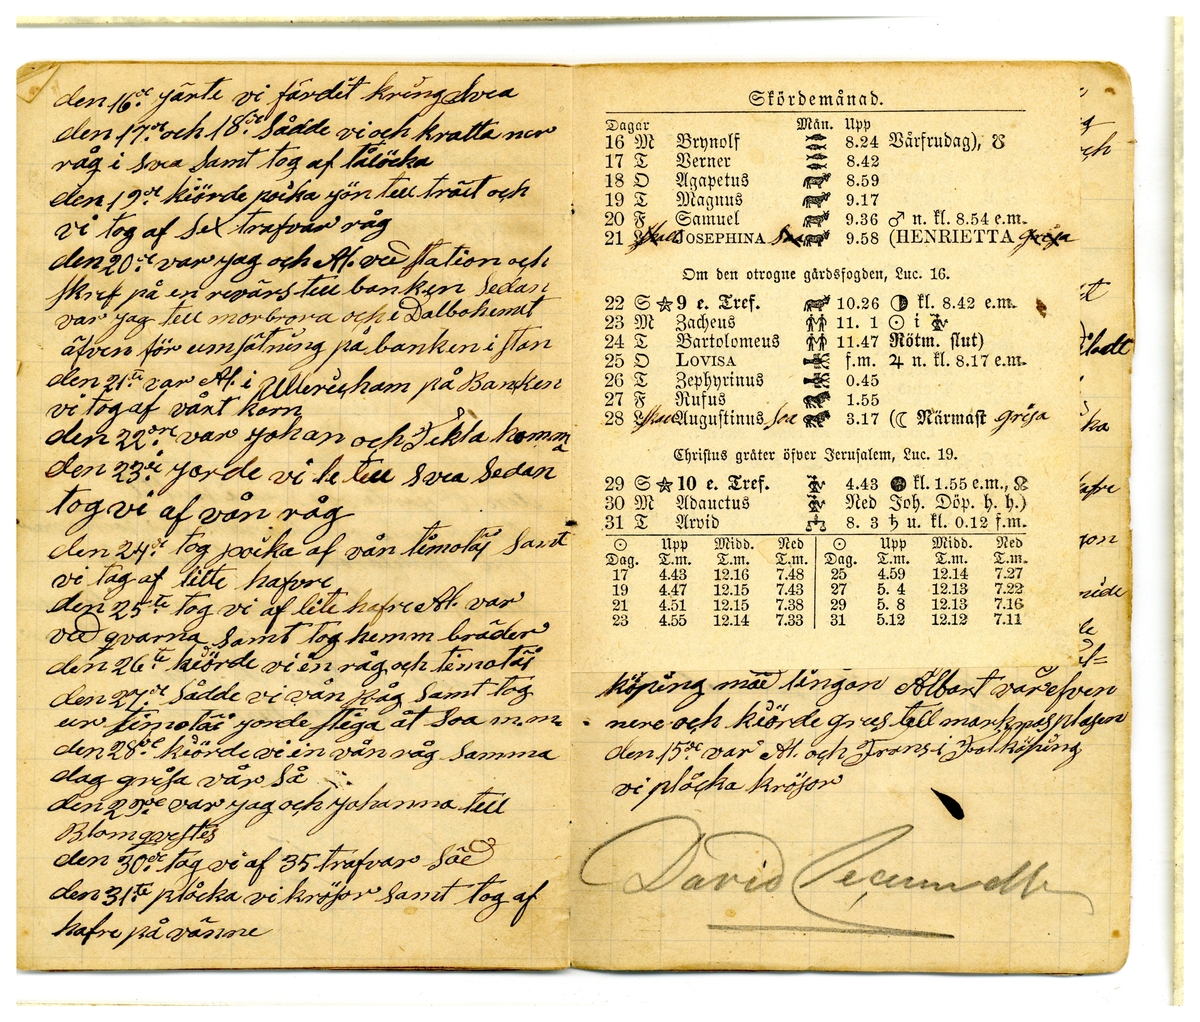 den 16de järte vi färdit kring svea
den 17de och 18de sådde vi och kratta ner
råg i svea samt tog af tålöcka
den 19de kiörde poika jön till träst och
vi tog af sex trafvar råg
den 20de var jag och Al. ved station och
skref på en revärs till banken sedan
var jag till morbrora och i Dalbohemet
äfven för umsätning på banken i stan
den 21te var Al. i Ulleruicham på Banken
vi tog af vårt korn
den 22re var johan och Tekla hemma
den 23di jorde vi le till svea sedan
tog vi af vån råg
den 24de tog poika af vån timotäj samt
vi tag af litte hafvre
den 25te tog vi af lite hafre Al. var
ved qvarna samt tog hemm bräder
den 26te kiörde vi en råg och timotäj
den 27de sådde vi vån råg samt tog
ur timotäj jorde stiga åt soa m.m
den 28de kiörde vi in vån råg samma
dag grisa vår så
den 29de var jag och johanna till
Blomqvistes
den 30de tog vi af 35 trafvar säd
den 31te plåcka vi krösor samt tog af
hafre på vänne
Skördemånad.
Dagar Mån. Upp
16 M Brynolf 8.24 Vårfrudag), ☋
17 T Verner 8.42
18 O Agapetus 8.59
19 T Magnus 9.17
20 F Samuel 9.36 ♂ n. kl. 8.54 e.m.
21 L skall JOSEPHINA Soa 9.58 (HENRIETTA grisa
Om den otrogne gårdsfogden, Luc. 16.
22 S ★ 9 e. Tref. 10.26 ◑ kl. 8.42 e.m.
23 M Zacheus 11. 1 ☉ i ♍
24 T Bartolomeus 11.47 Rötm. slut)
25 O LOVISA f.m. ♃ n. kl. 8.17 e.m.
26 T Zephyrinus 0.45
27 F Rufus 1.55
28 L skall Augustinus Soa 3.17 (☾ Närmast grisa
Christus gråter öfver Jerusalem, Luc. 19.
29 S ★ 10 e. Tref. 4.43 ● kl. 1.55 e.m., ☊
30 M Adauctus Ned Joh. Döp. h. h.)
31 T Arvid 8. 3 ♄ u. kl. 0.12 f.m.
☉ Upp Midd. Ned ☉ Upp Midd. Ned
Dag. T.m. T.m. T.m. Dag. T.m. T.m. T.m.
17 4.43 12.16 7.48 25 4.59 12.14 7.27
19 4.47 12.15 7.43 27 5. 4 12.13 7.22
21 4.51 12.15 7.38 29 5. 8 12.13 7.16
23 4.55 12.14 7.33 31 5.12 12.12 7.11
köping med lingon Albart var efven
nere och kiörde grus till markpasplasen
den 15de var Al. och Frans i Falköping
vi plåcka krösor
David